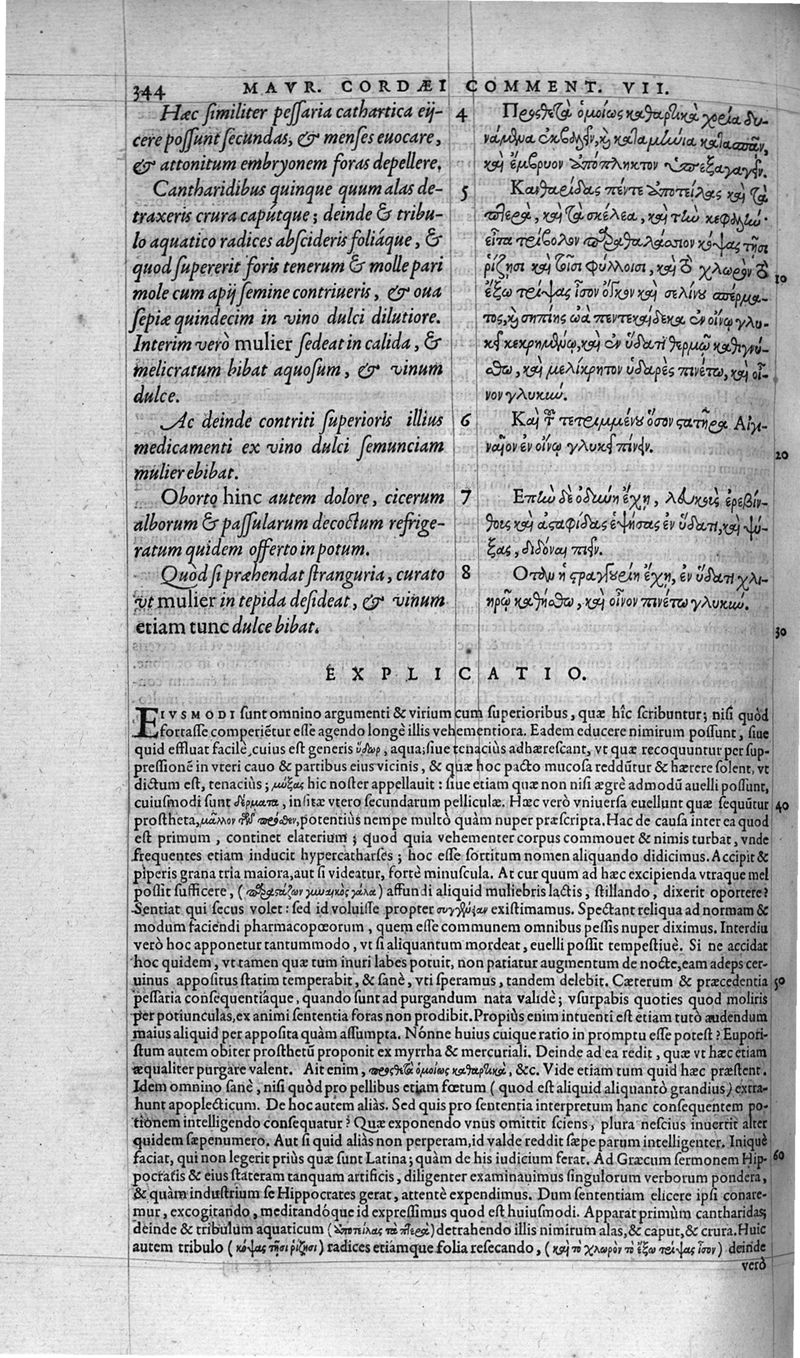 344 MAVR. CORDÆI COMMENT. VII.
Hæc similiter pessaria cathartica eij-
cere possunt secundas, & menses euocare,
& attonitum embryonem foras depellere.
Cantharidibus quinque quum alas de-
traxeris crura capútque; deinde & tribu-
lo aquatico radices absciderís foliáque, &
quod supererit foris tenerum & molle pari
mole cum apij semine contriueris, & oua
sepiæ quindecim in vino dulci dilutiore.
Interim verò mulier sedeat in calida, &
melicratum bibat aquosum, & vinum
dulce.
Ac deinde contriti superioris illius
medicamenti ex vino dulci semunciam
mulier ebibat.
Oborto hinc autem dolore, cicerum
alborum & passularum decoctum refrige-
ratum quidem offerto in potum.
Quòd si præhendat stranguria, curato
vt mulier in tepida desideat, & vinum
etiam tunc dulce bibat.
4 Προσθετὰ ὁμοίως καθαρτικὰ χορία δυ-
νάμενα ἐκβάλλειν, καὶ καταμήνια κατασπᾶν,
καὶ ἔμβρυον ἀπόπληκτον ὑπεξαγαγεῖν.
5 Κανθαρίδας πέντε ἀποτείλας καὶ τὰ
πτερὰ, καὶ τὰ σκέλεα, καὶ τὴν κεφαλὴν·
εἶτα τρίβολον παραθαλάσσιον κόψας τῇσι
ῥίζησι καὶ τοῖσι φύλλοισι, καὶ τὸ χλωρὸν τὸ 10
ἔξω τρίψας ἴσον ὄγκον καὶ σελίνου σπέρμα-
τος, καὶ σηπίης ὠὰ πεντεκαίδεκα ἐν οἴνῳ γλυ-
κεῖ κεκρημένῳ, καὶ ἐν ὕδατι θερμῷ καθήσ-
θω, καὶ μελίκρητον ὑδαρὲς πινέτω, καὶ οἶ-
νον γλυκύν.
6 Καὶ τοῦ τετριμμένου ὅσον στατῆρα Αἰγι-
ναῖον ἐν οἴνῳ γλυκεῖ πίνειν. 20
7 Ἐπὴν δὲ ὀδύνη ἔχῃ, λευκοὺς ἐρεβίν-
θους καὶ ἀσταφίδας ἑψήσας ἐν ὕδατι, καὶ ψύ-
ξας, διδόναι πιεῖν.
8 Ὅταν ἡ στραγγουρίη ἔχῃ, ἐν ὕδατι χλι-
ηρῷ καθήσθω, καὶ οἶνον πινέτω γλυκύν.
30
EXPLICATIO.
EIVSMODI sunt omnino argumenti & virium cum superioribus, quæ hîc scribuntur; nisi quòd
fortasse comperiẽtur esse agendo longè illis vehementiora. Eadem educere nimirum possunt, siue
quid effluat facilè, cuius est generis ὕδωρ, aqua; siue tenacius adhærescant, vt quæ recoquuntur per sup-
pressionẽ in vteri cauo & partibus eius vicinis, & quæ hoc pacto mucosa reddũtur & hærere solent, vt
dictum est, tenacius; μύξας hic noster appellauit: siue etiam quæ non nisi ægrè admodũ auelli possunt,
cuiusmodi sunt δέρματα, insitæ vtero secundarum pelliculæ. Hæc verò vniuersa euellunt quæ sequũtur 40
prostheta, μᾶλλον τῶν πρόσθεν, potentiùs nempe multò quàm nuper præscripta. Hac de causa inter ea quod
est primum, continet elaterium; quod quia vehementer corpus commouet & nimis turbat, vnde
frequentes etiam inducit hypercatharses; hoc esse sortitum nomen aliquando didicimus. Accipit &
piperis grana tria maiora, aut si videatur, fortè minuscula. At cur quum ad hæc excipienda vtraque mel
possit sufficere, (παραστάζων γυναικὸς γάλα) affundi aliquid muliebris lactis, stillando, dixerit oportere?
Sentiat qui secus volet: sed id voluisse propter existimamus. Spectant reliqua ad normam &
modum faciendi pharmacopœorum, quem esse communem omnibus pessis nuper diximus. Interdiu
verò hoc apponetur tantummodo, vt si aliquantum mordeat, euelli possit tempestiuè. Si ne accidat
hoc quidem, vt tamen quæ tum inuri labes potuit, non patiatur augmentum de nocte, eam adeps cer-
uinus appositus statim temperabit, & sanè, vti speramus, tandem delebit. Cæterum & præcedentia 50
pessaria consequentiáque, quando sunt ad purgandum nata validè; vsurpabis quoties quod moliris
per potiunculas, ex animi sententia foras non prodibit. Propiùs enim intuenti est etiam tutò audendum
maius aliquid per apposita quàm assumpta. Nónne huius cuique ratio in promptu esse potest? Eupori-
stum autem obiter prosthetũ proponit ex myrrha & mercuriali. Deinde ad ea redit, quæ vt hæc etiam
æqualiter purgare valent. Ait enim, προσθετὰ ὁμοίως καθαρτικὰ, &c. Vide etiam tum quid hæc præstent.
Idem omnino sanè, nisi quòd pro pellibus etiam fœtum (quod est aliquid aliquantò grandius) extra-
hunt apoplecticum. De hoc autem aliàs. Sed quis pro sententia interpretum hanc consequentem po-
tionem intelligendo consequatur? Quæ exponendo vnus omittit sciens, plura nescius inuertit alter
quidem sæpenumero. Aut si quid aliàs non perperam, id valde reddit sæpe parum intelligenter. Iniquè
faciat, qui non legerit priùs quæ sunt Latina; quàm de his iudicium ferat. Ad Græcum sermonem Hip- 60
pocratis & eius stateram tanquam artificis, diligenter examinauimus singulorum verborum pondera,
& quàm industrium se Hippocrates gerat, attentè expendimus. Dum sententiam elicere ipsi conare-
mur, excogitando, meditandóque id expressimus quod est huiusmodi. Apparat primùm cantharidas;
deinde & tribulum aquaticum (ἀποτείλας τὰ πτερὰ) detrahendo illis nimirum alas, & caput, & crura. Huic
autem tribulo (κόψας τῇσι ῥίζησι) radices etiámque folia resecando, (καὶ τὸ χλωρὸν τὸ ἔξω τρίψας ἴσον) deinde
verò